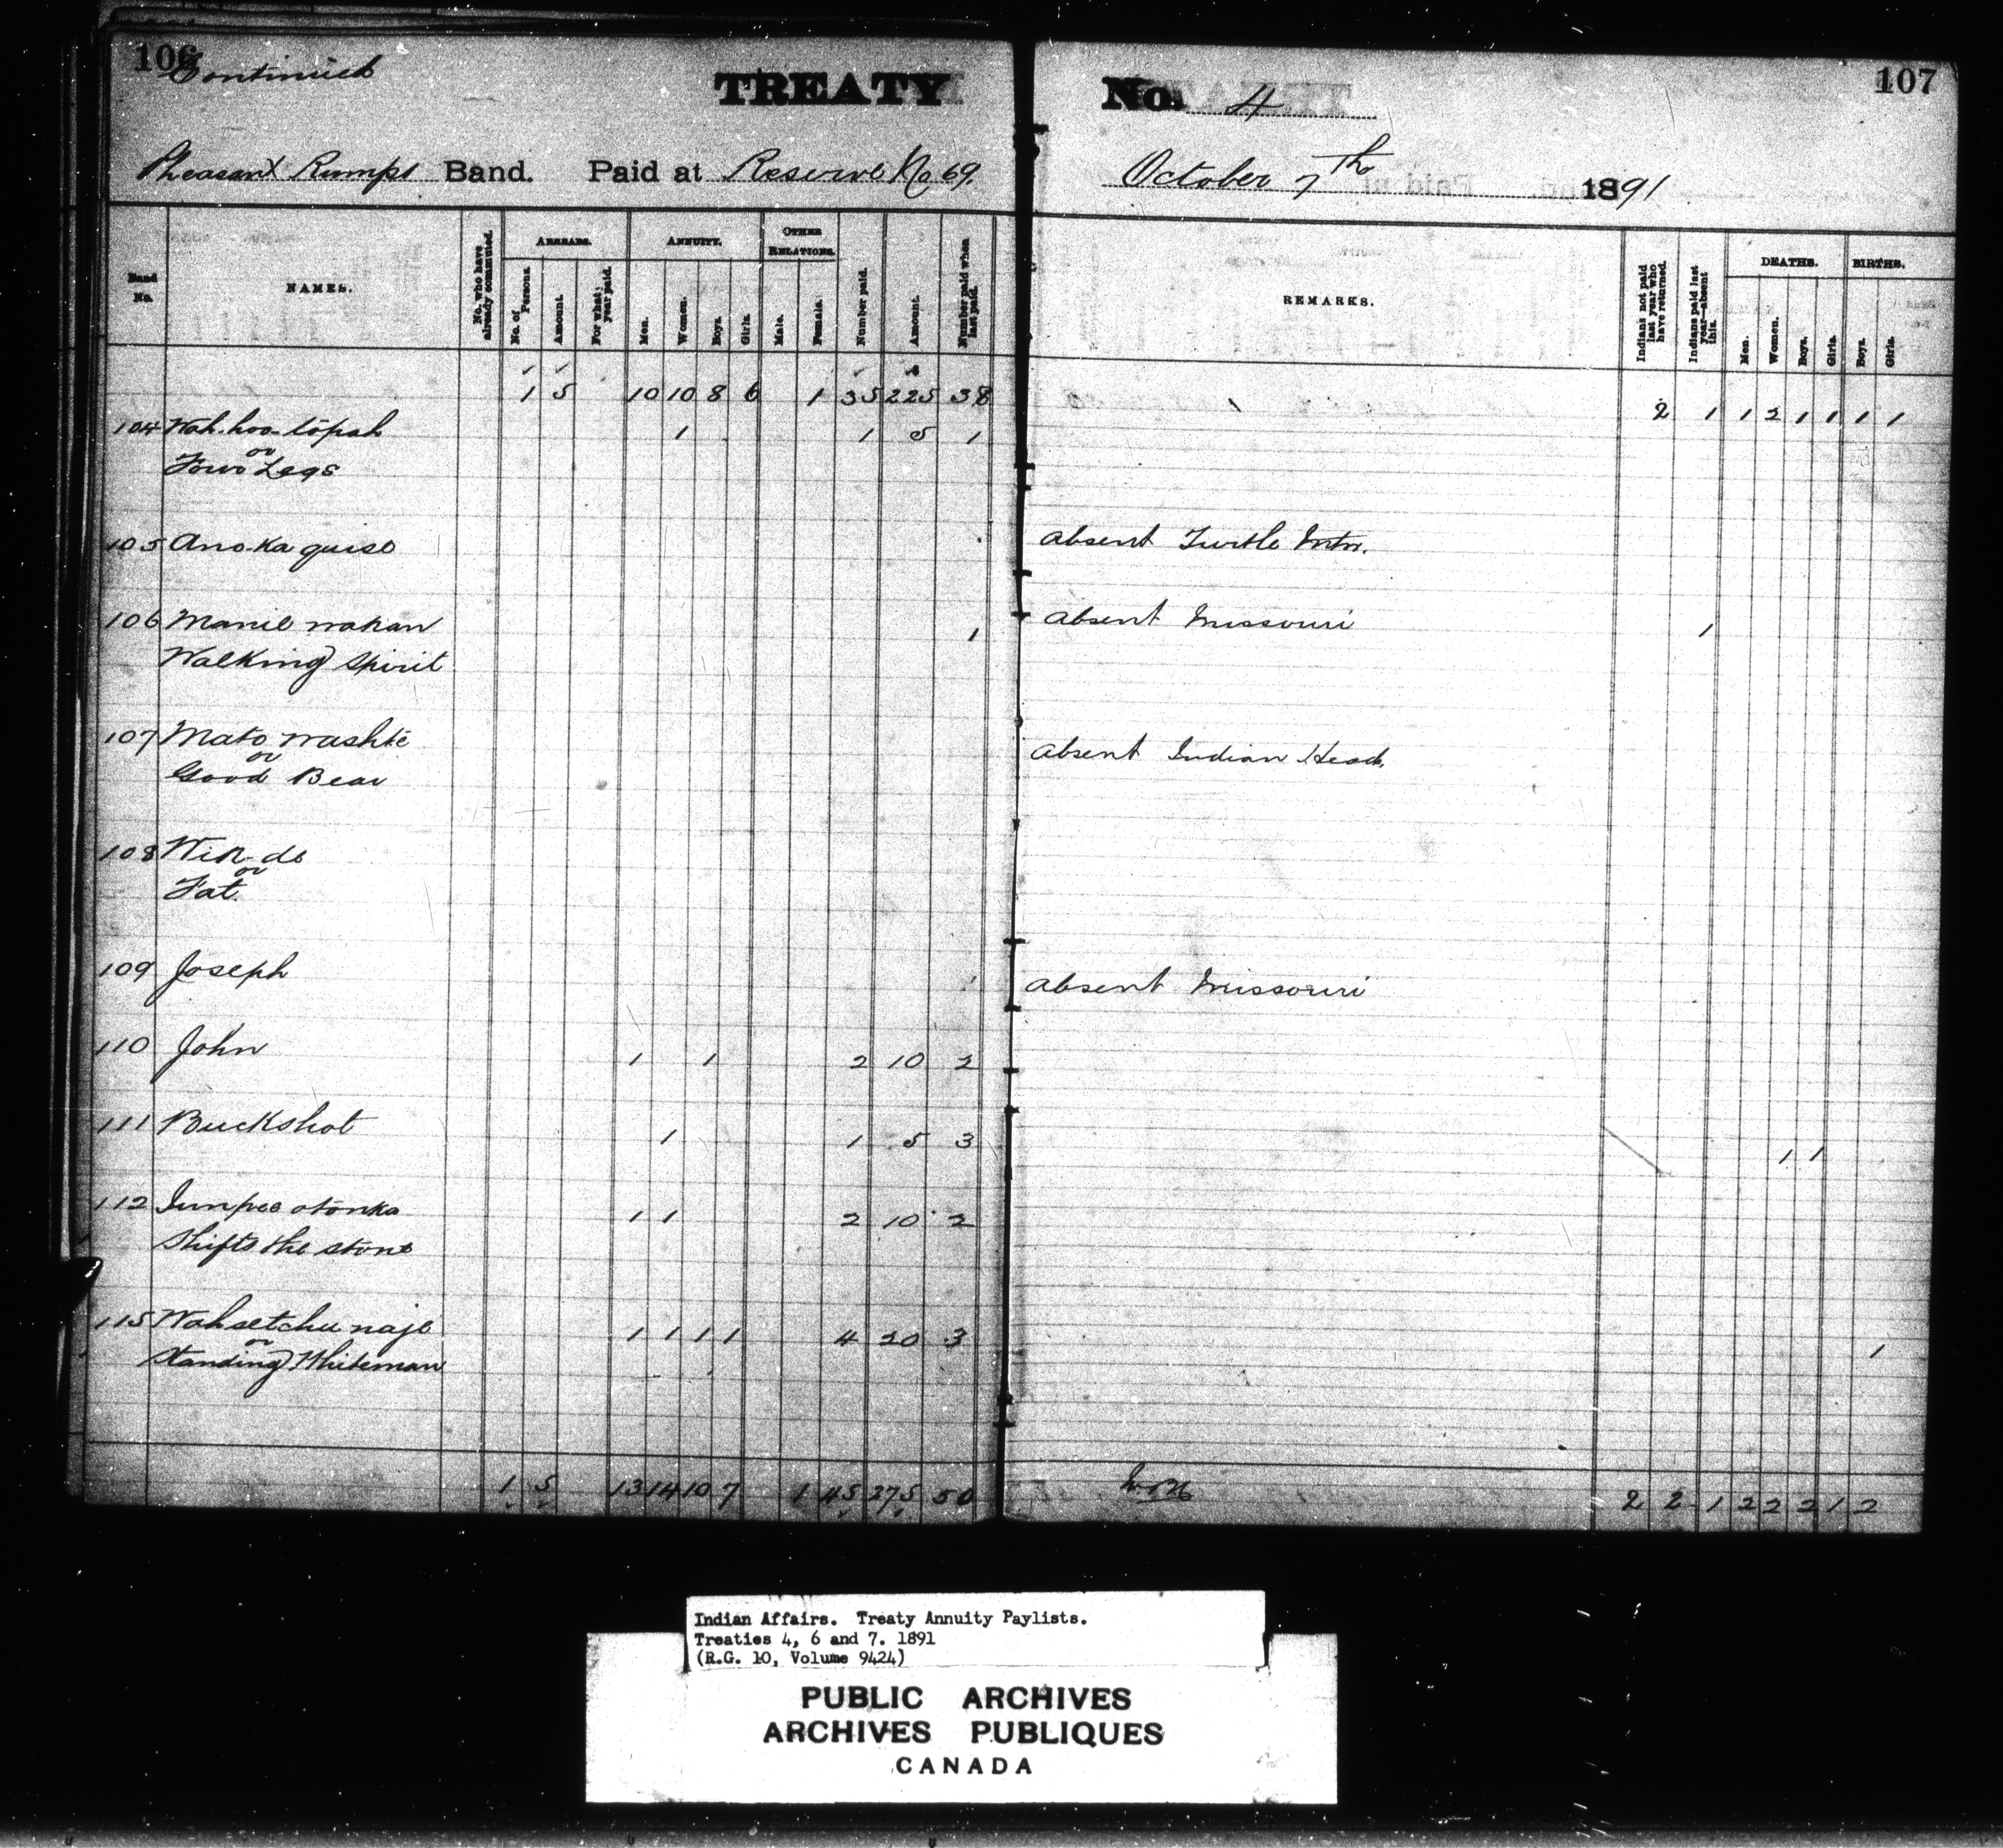 106 Continued
TREATY No. 4 107
Pheasant Rumps Band. Paid at Reserve No 69. October 7th 1891
Band No.
NAMES.
No. who have already commuted.
ARREARS.
No. of Persons.
Amount.
For what year paid.
ANNUITY.
Men.
Women.
Boys.
Girls.
OTHER RELATIONS.
Male.
Female.
Number paid.
Amount.
Number paid when last paid.
REMARKS.
Indians not paid last year who have returned.
Indians paid last year—absent this.
DEATHS.
Men.
Women.
Boys.
Girls.
BIRTHS.
Boys.
Girls.
1 5 10 10 8 6 1 35 225 38 2 1 1 2 1 1 1 1
104 Wah-hoo-topah 1 1 5 1
or
Four Legs
105 Anokaquise Absent Turtle Mtn.
106 Manie wakan 1 Absent Missouri 1
Walking Spirit
107 Mato washte
or
Good Bear Absent Indian Head.
108 Wik-de
or
Fat.
109 Joseph Absent Missouri
110 John 1 1 2 10 2
111 Buckshot 1 1 5 3 1 1
112 Inmpee otonka 1 1 2 10 2
Shifts the stone
115 Wahsetchu naje 1 1 1 1 4 20 3 1
or
Standing Whiteman
1 5 13 14 10 7 1 45 275 50 2 2 1 2 2 2 1 2
Indian Affairs. Treaty Annuity Paylists.
Treaties 4, 6 and 7. 1891
(R.G. 10, Volume 9424)
PUBLIC ARCHIVES
ARCHIVES PUBLIQUES
CANADA